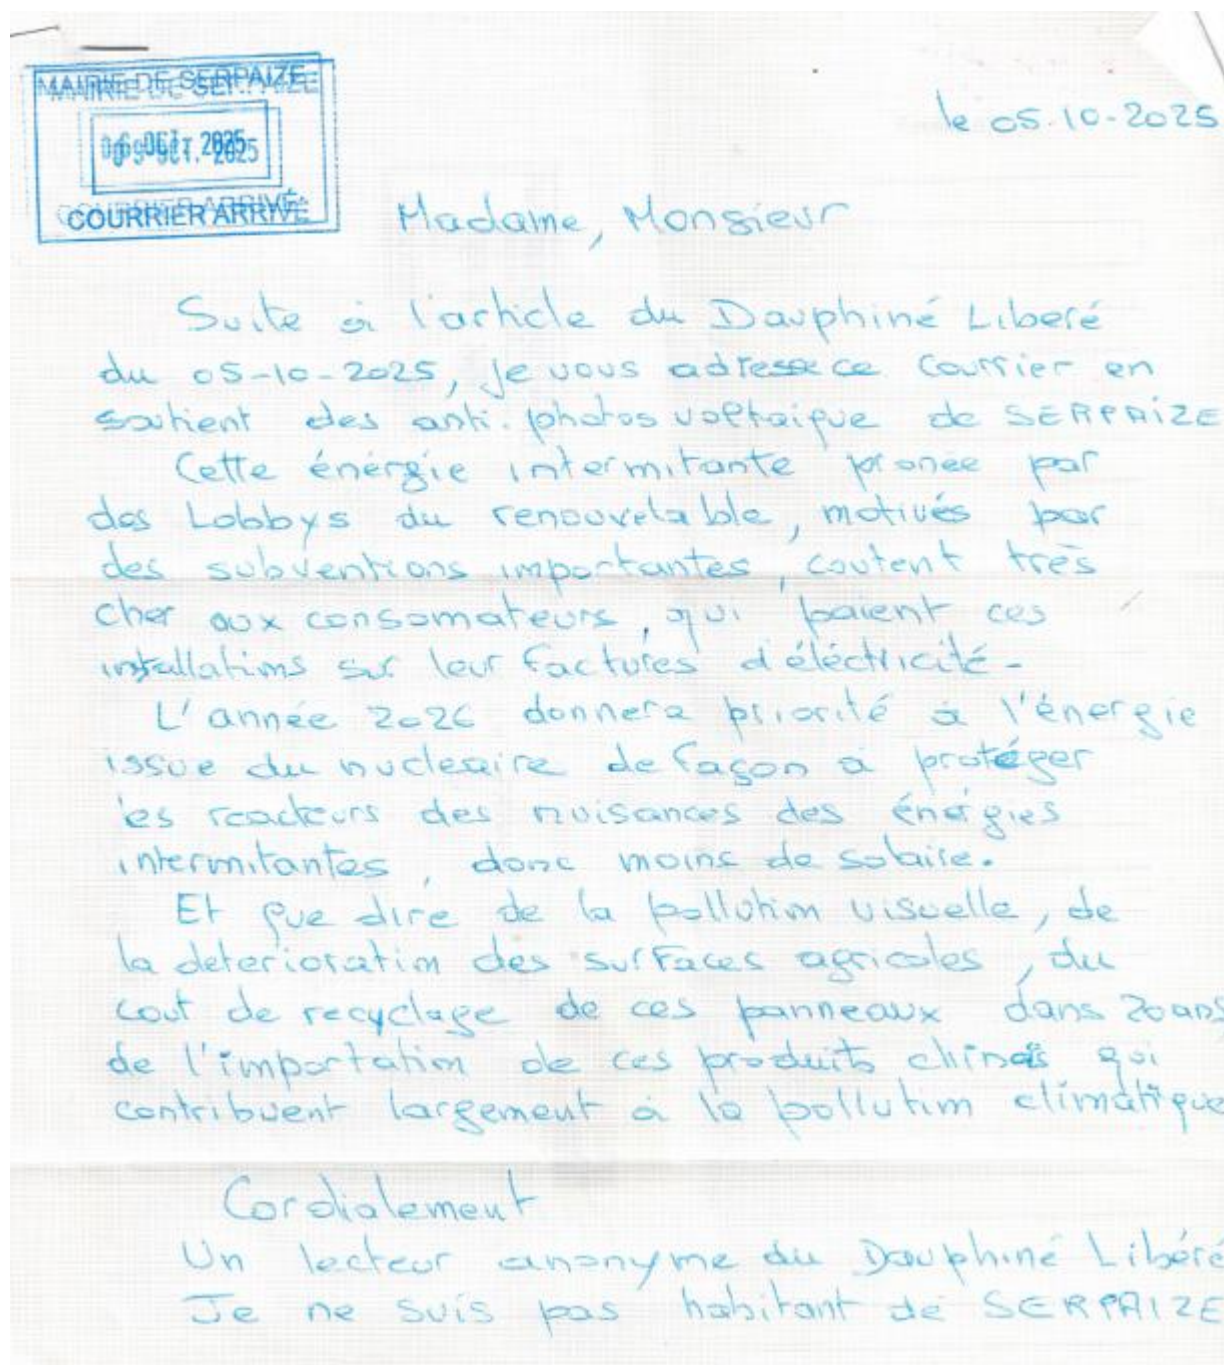 MAIRIE DE SERPAIZE
OCT. 2025
COURRIER ARRIVÉ
le 05-10-2025
Madame, Monsieur
Suite à l'article du Dauphiné Liberé
du 05-10-2025, je vous adresse ce courrier en
soutient des anti. photos voltaique de SERPAIZE
Cette énérgie intermitante pronée par
des Lobbys du renouvelable, motivés par
des subventions importantes, coutent très
cher aux consomateurs, qui paient ces
installations sur leur factures d'éléctricité-
L'année 2026 donnera priorité à l'énergie
issue du nucleaire de façon à protéger
les reacteurs des nuisances des énérgies
intermitantes, donc moins de solaire.
Et que dire de la pollution visuelle, de
la deterioration des surfaces agricoles, du
cout de recyclage de ces panneaux dans 20 ans
de l'importation de ces produits chinois qui
contribuent largement à la pollution climatique
Cordialement
Un lecteur anonyme du Dauphiné Libéré
Je ne suis pas habitant de SERPAIZE